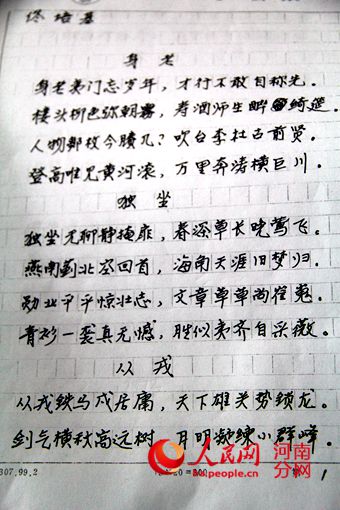 佟培基
身老
身老夷门忘岁年,才行不敢自称先。
楼头柳色弥朝雾,寿酒师生晔绮筵。
人物邹枚今賸几?吹台李杜古前贤。
登高唯见黄河滚,万里奔涛横巨川。
独坐
独坐无聊静掩扉,春深草长晓莺飞。
燕南蓟北空回首,海角天涯旧梦归。
勋业平平惊壮志,文章草草尚崔嵬。
青衫一袭真无憾,胜似夷齐自采薇。
从戎
从戎铁马戍居庸,天下雄关势锁龙。
剑气横秋高远树,月明凝练小群峰。
人民网 河南分网
people.cn
307.99.2
20=300
1